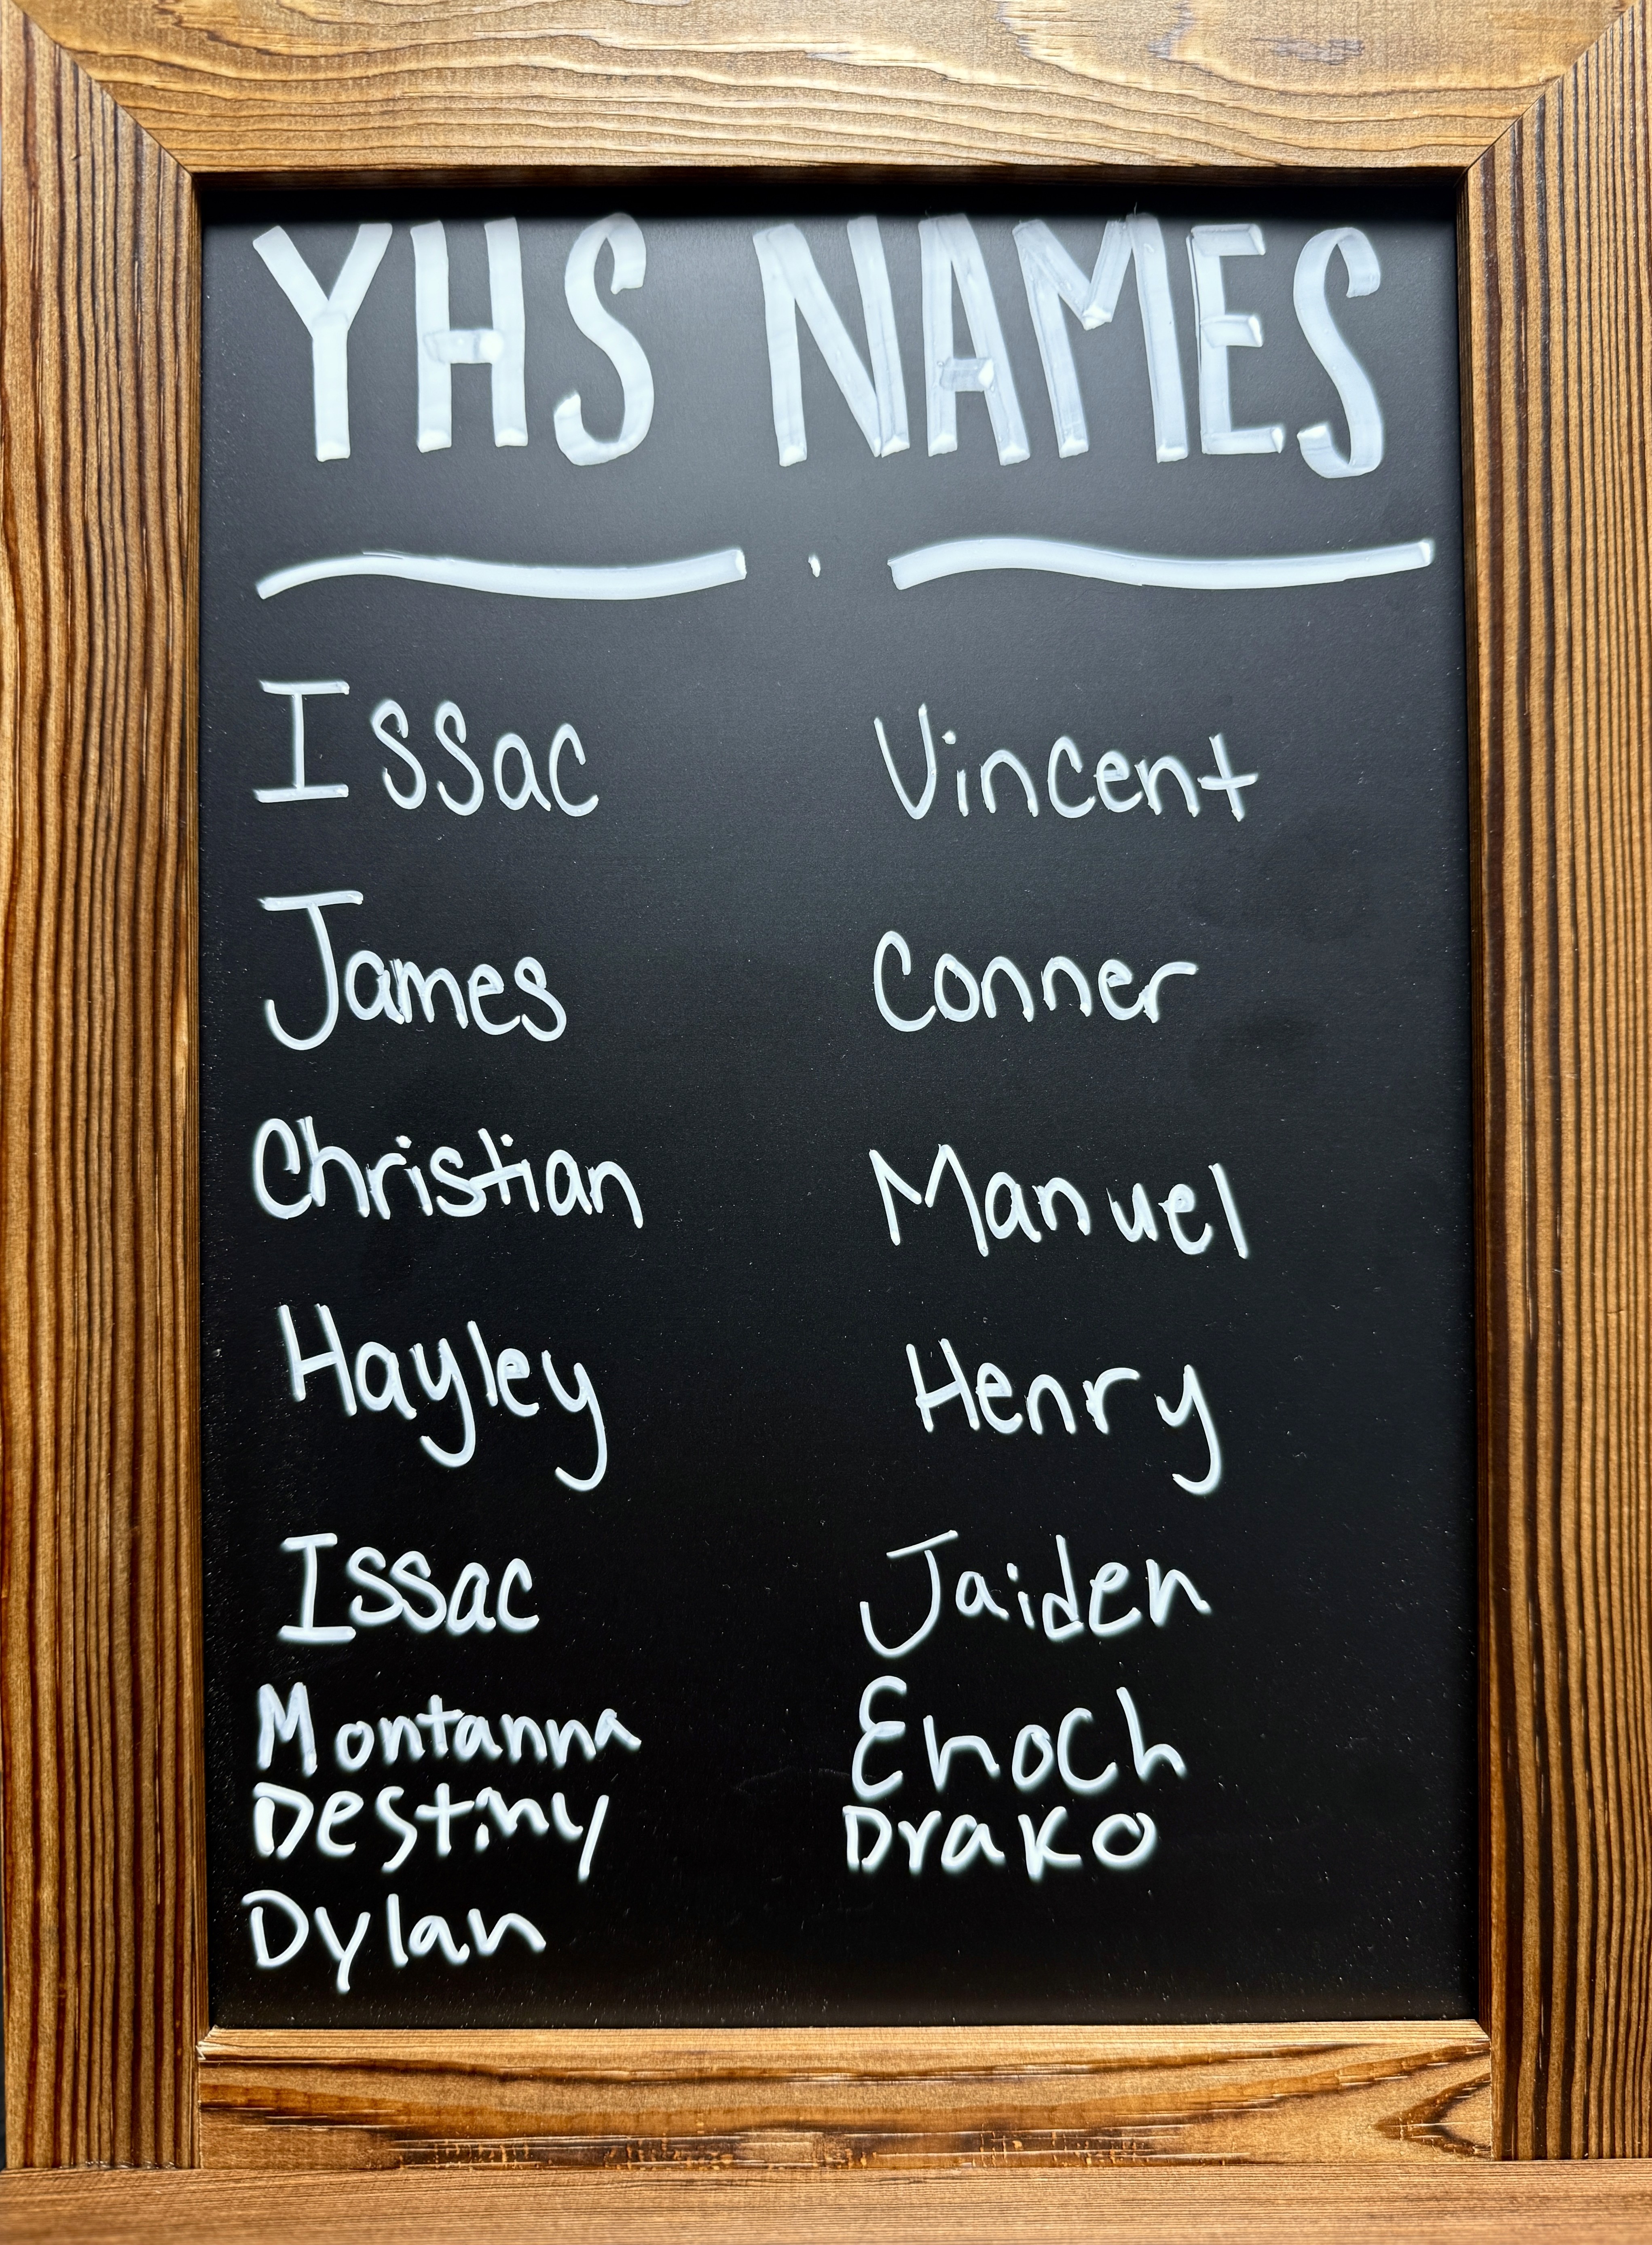 YHS NAMES
Issac Vincent
James Conner
Christian Manuel
Hayley Henry
Issac Jaiden
Montanna Enoch
Destiny Drako
Dylan